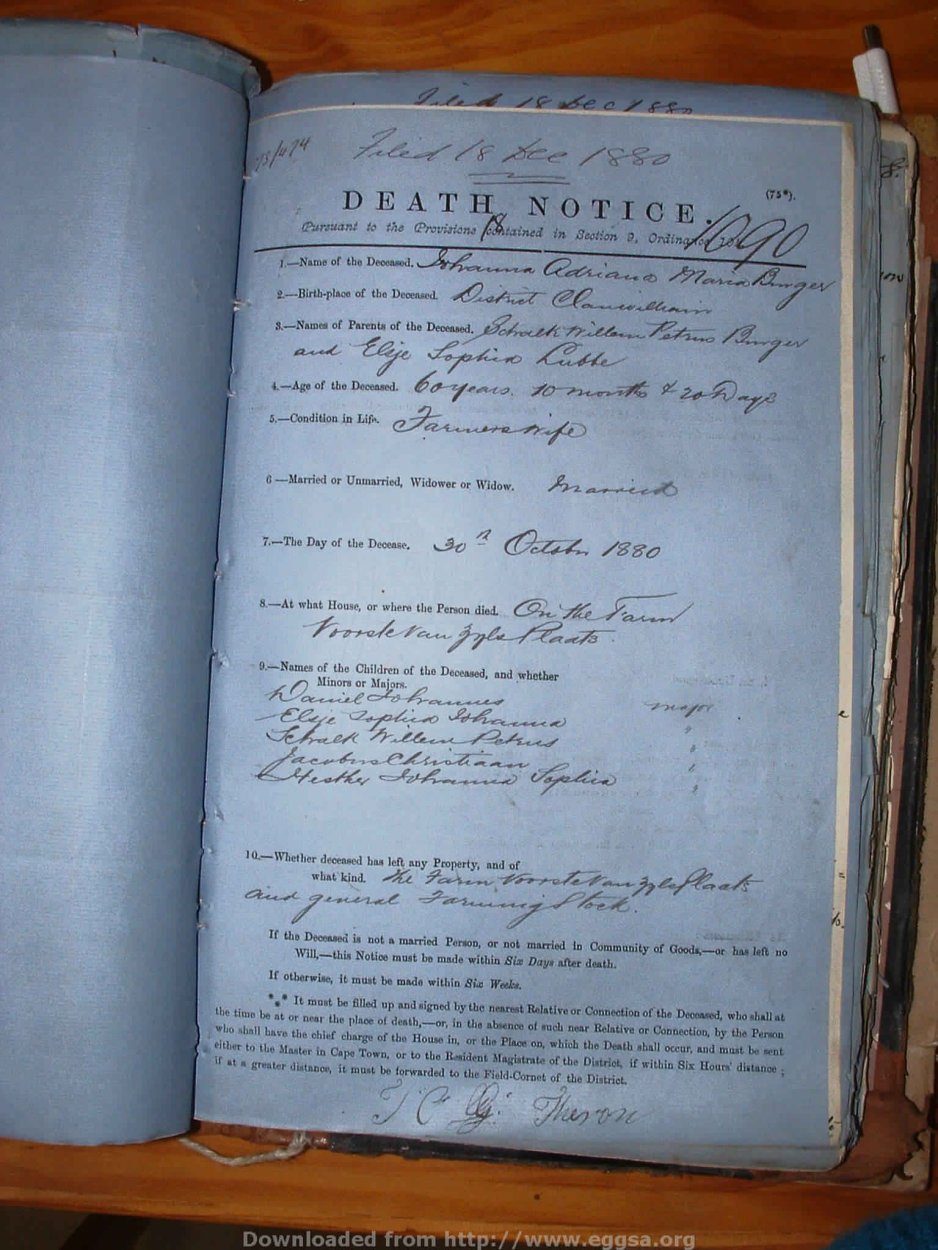 Filed 18 Dec 1880
Filed 18 Dec 1880
(75*).
DEATH NOTICE.
1090
Pursuant to the Provisions contained in Section 9, Ordinance
1.—Name of the Deceased. Johanna Adriana Maria Burger
2.—Birth-place of the Deceased. District Clanwilliam
3.—Names of Parents of the Deceased. Schalk Willem Petrus Burger
and Elsje Sophia Lubbe
4.—Age of the Deceased. 60 years. 10 months & 20 Days
5.—Condition in Life. Farmers wife
6—Married or Unmarried, Widower or Widow. Married
7.—The Day of the Decease. 30th October 1880
8.—At what House, or where the Person died. On the Farm
Voorste Van Zyls Plaats.
9.—Names of the Children of the Deceased, and whether
Minors or Majors.
Daniel Johannes major
Elsje Sophia Johanna "
Schalk Willem Petrus "
Jacobus Christiaan "
Hesther Johanna Sophia "
10.—Whether deceased has left any Property, and of
what kind. The Farm Voorste Van Zyls Plaats
and general Farming Stock.
If the Deceased is not a married Person, or not married in Community of Goods,—or has left no
Will,—this Notice must be made within Six Days after death.
If otherwise, it must be made within Six Weeks.
*** It must be filled up and signed by the nearest Relative or Connection of the Deceased, who shall at
the time be at or near the place of death,—or, in the absence of such near Relative or Connection, by the Person
who shall have the chief charge of the House in, or the Place on, which the Death shall occur, and must be sent
either to the Master in Cape Town, or to the Resident Magistrate of the District, if within Six Hours' distance ;
if at a greater distance, it must be forwarded to the Field-Cornet of the District.
Theron
Downloaded from http://www.eggsa.org